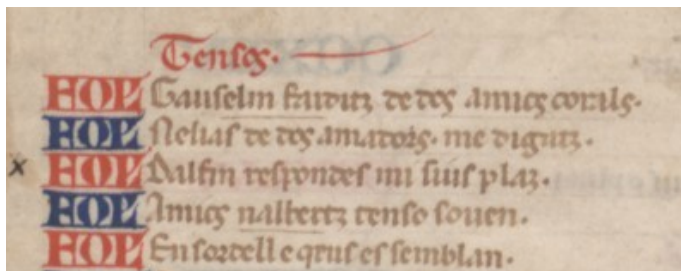 Tenses.
FOL Gauselm faiditz de dos amics corals.
FOL Nelias de dos amadors. me digatz.
x FOL Dalfin respondes mi sius plaz.
FOL Amics nalbertz tenso souen.
FOL En sordell e qeus es semblan.